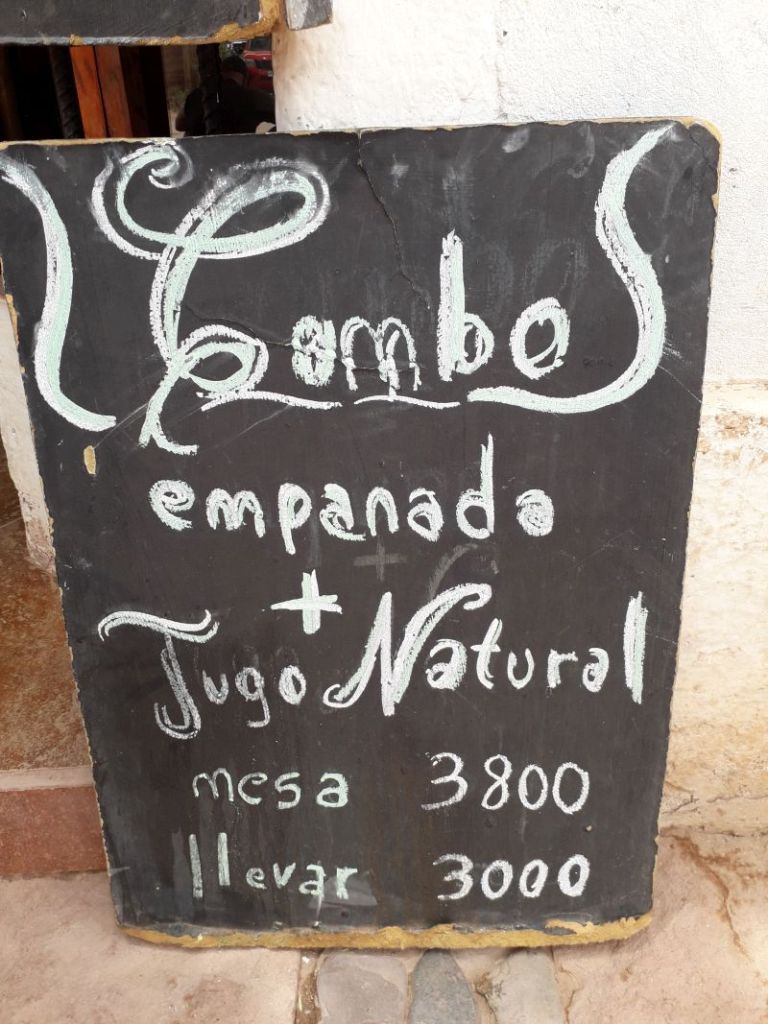 Combo
empanada
+
Jugo Natural
mesa 3800
llevar 3000